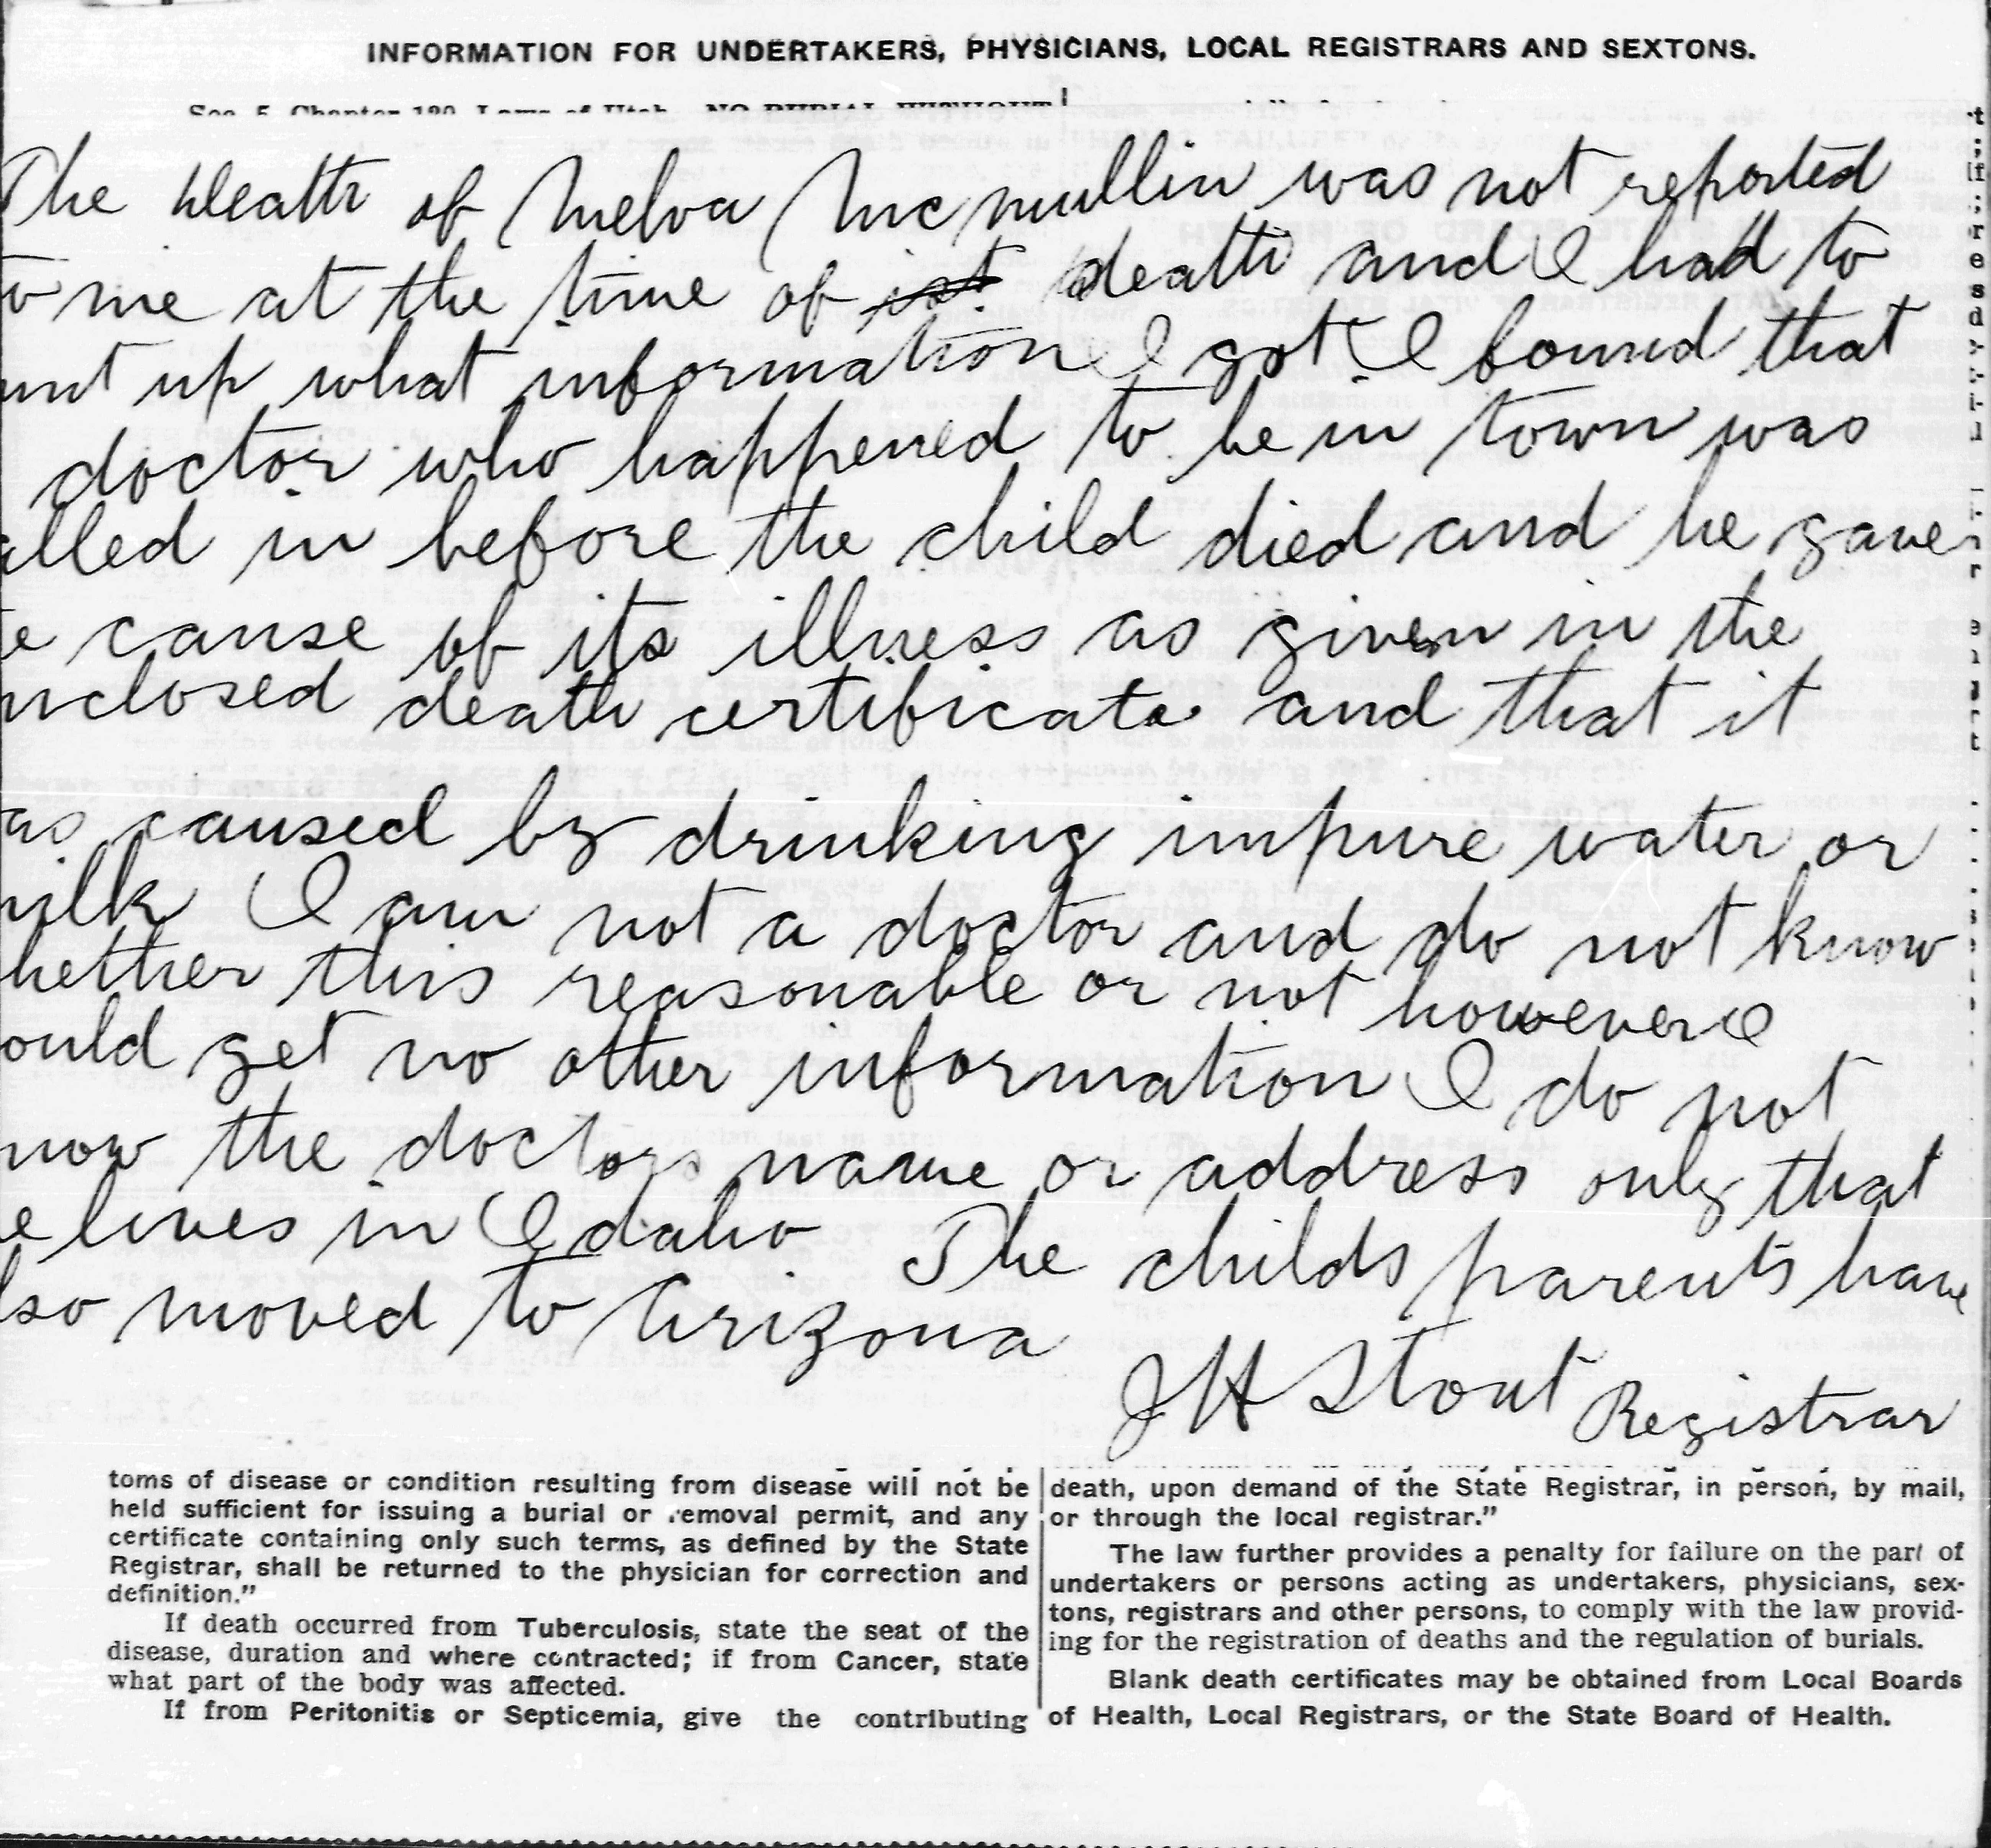 INFORMATION FOR UNDERTAKERS, PHYSICIANS, LOCAL REGISTRARS AND SEXTONS.
The death of Melva McMullin was not reported
to me at the time of ist death and I had to
unt up what information I got I found that
doctor who happened to be in town was
alled in before the child died and he gave
e cause of its illness as given in the
nclosed death certificate and that it
as caused by drinking impure water or
milk I am not a doctor and do not know
hether this reasonable or not however I
ould get no other information I do not
now the doctors name or address only that
e lives in Idaho The childs parents have
lso moved to Arizona
JH Stout Registrar
toms of disease or condition resulting from disease will not be
held sufficient for issuing a burial or removal permit, and any
certificate containing only such terms, as defined by the State
Registrar, shall be returned to the physician for correction and
definition."
If death occurred from Tuberculosis, state the seat of the
disease, duration and where contracted; if from Cancer, state
what part of the body was affected.
If from Peritonitis or Septicemia, give the contributing
death, upon demand of the State Registrar, in person, by mail,
or through the local registrar."
The law further provides a penalty for failure on the part of
undertakers or persons acting as undertakers, physicians, sex-
tons, registrars and other persons, to comply with the law provid-
ing for the registration of deaths and the regulation of burials.
Blank death certificates may be obtained from Local Boards
of Health, Local Registrars, or the State Board of Health.